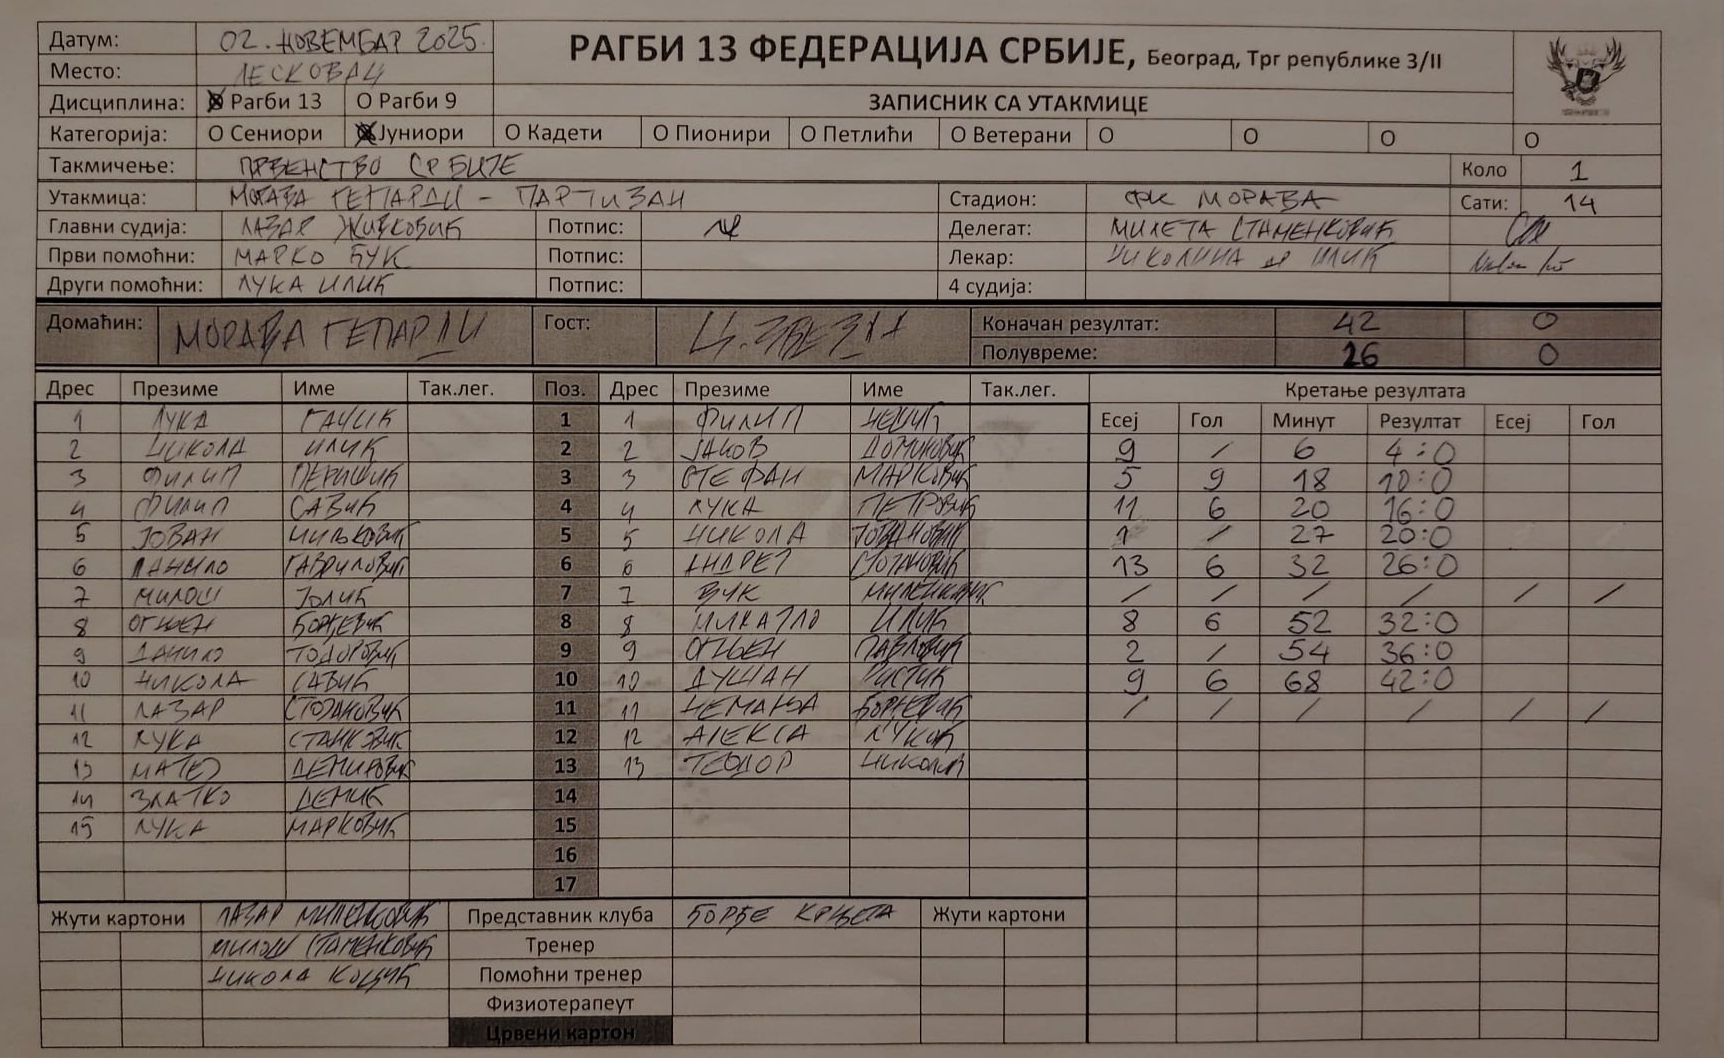 Датум: 02. НОВЕМБАР 2025. РАГБИ 13 ФЕДЕРАЦИЈА СРБИЈЕ, Београд, Трг републике 3/II
Место: ЛЕСКОВАЦ
Дисциплина: Рагби 13 О Рагби 9 ЗАПИСНИК СА УТАКМИЦЕ
Категорија: О Сениори Јуниори О Кадети О Пионири О Петлићи О Ветерани О О О О
Такмичење: ПРВЕНСТВО СРБИЈЕ Коло 1
Утакмица: МОРАВА ГЕПАРДИ - ПАРТИЗАН Стадион: ФК МОРАВА Сати: 14
Главни судија: ЛАЗАР ЖИВКОВИЋ Потпис: Делегат: МИЛЕТА СТАМЕНКОВИЋ
Први помоћни: МАРКО ЂУК Потпис: Лекар: НИКОЛИНА ИЛИЋ
Други помоћни: ЛУКА ИЛИЋ Потпис: 4 судија:
Домаћин: МОРАВА ГЕПАРДИ Гост: Ц. ЗВЕЗДА Коначан резултат: 42 0
Полувреме: 26 0
Дрес Презиме Име Так.лег. Поз. Дрес Презиме Име Так.лег. Кретање резултата
Есеј Гол Минут Резултат Есеј Гол
1 ЛУКА ГАЦИЋ 1 1 ФИЛИП НЕШИЋ
2 НИКОЛА ИЛИЋ 2 2 ЈАКОВ 9 / 6 4:0
3 ФИЛИП ПЕРИШИЋ 3 3 СТЕФАН МАРКОВИЋ 5 9 18 10:0
4 ФИЛИП САВИЋ 4 4 ЛУКА ПЕТРОВИЋ 11 6 20 16:0
5 ЈОВАН МИЉКОВИЋ 5 5 НИКОЛА ЈОВАНОВИЋ 1 / 27 20:0
6 ДАНИЛО ГАВРИЛОВИЋ 6 6 АНДРЕЈ СТОЈАНОВИЋ 13 6 32 26:0
7 МИЛОШ ЈОЛИЋ 7 7 ВУК МИЛЕНКОВИЋ / / / / / /
8 ОГЊЕН ЂОРЂЕВИЋ 8 8 МИХАЈЛО ИЛИЋ 8 6 52 32:0
9 ДАНИЛО ТОДОРОВИЋ 9 9 ОГЊЕН ПАВЛОВИЋ 2 / 54 36:0
10 НИКОЛА САВИЋ 10 10 ДУШАН РИСТИЋ 9 6 68 42:0
11 ЛАЗАР СТОЈАНОВИЋ 11 11 НЕМАЊА ЂОРЂЕВИЋ / / / / / /
12 ЛУКА СТАНКОВИЋ 12 12 АЛЕКСА ЛУКИЋ
13 МАТЕЈ ДЕМИРОВИЋ 13 13 ТЕОДОР НИКОЛИЋ
14 ЗЛАТКО ДЕМИЋ 14
15 ЛУКА МАРКОВИЋ 15
16
17
Жути картони ЛАЗАР МИЛЕНКОВИЋ Представник клуба ЂОРЂЕ КРЊЕТА Жути картони
МИЛОШ СТАМЕНКОВИЋ Тренер
НИКОЛА КОЦИЋ Помоћни тренер
Физиотерапеут
Црвени картон